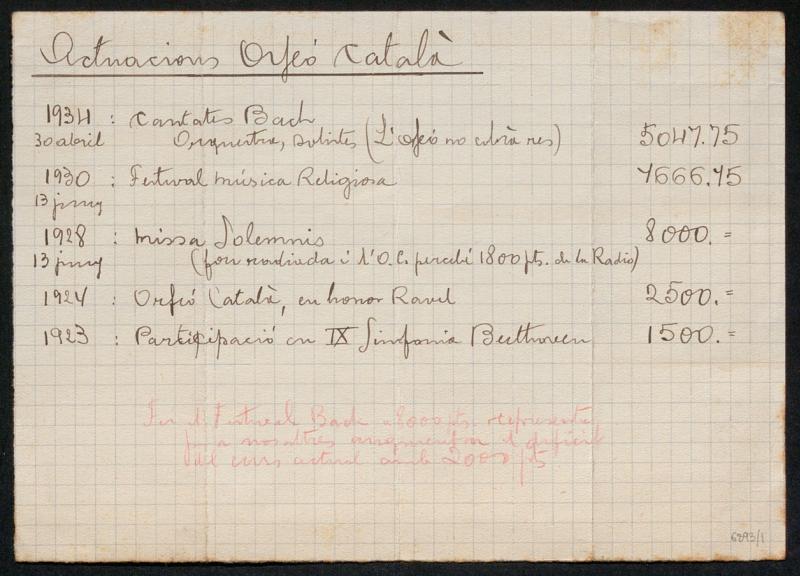 Actuacions Orfeó Català
1934 : Cantates Bach
30 abril Orquestra, solistes (L'Orfeó no cobrà res) 5047.75
1930 : Festival música Religiosa 7666.75
13 juny
1928 : Missa Solemnis 8000.=
13 juny (fou radiada i l'O.C. percebé 1800 pts. de la Radio)
1924 : Orfeó Català, en honor Ravel 2500.=
1923 : Participació en IX Simfonia Beethoven 1500.=
Fer el Festival Bach a 8000 pts. representa
per a nosaltres augmentar el dèficit
del curs actual amb 2000 pts
6293/1